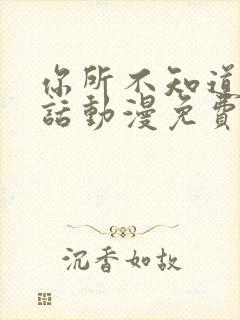 你所不知道
話動漫免費
沉香如故